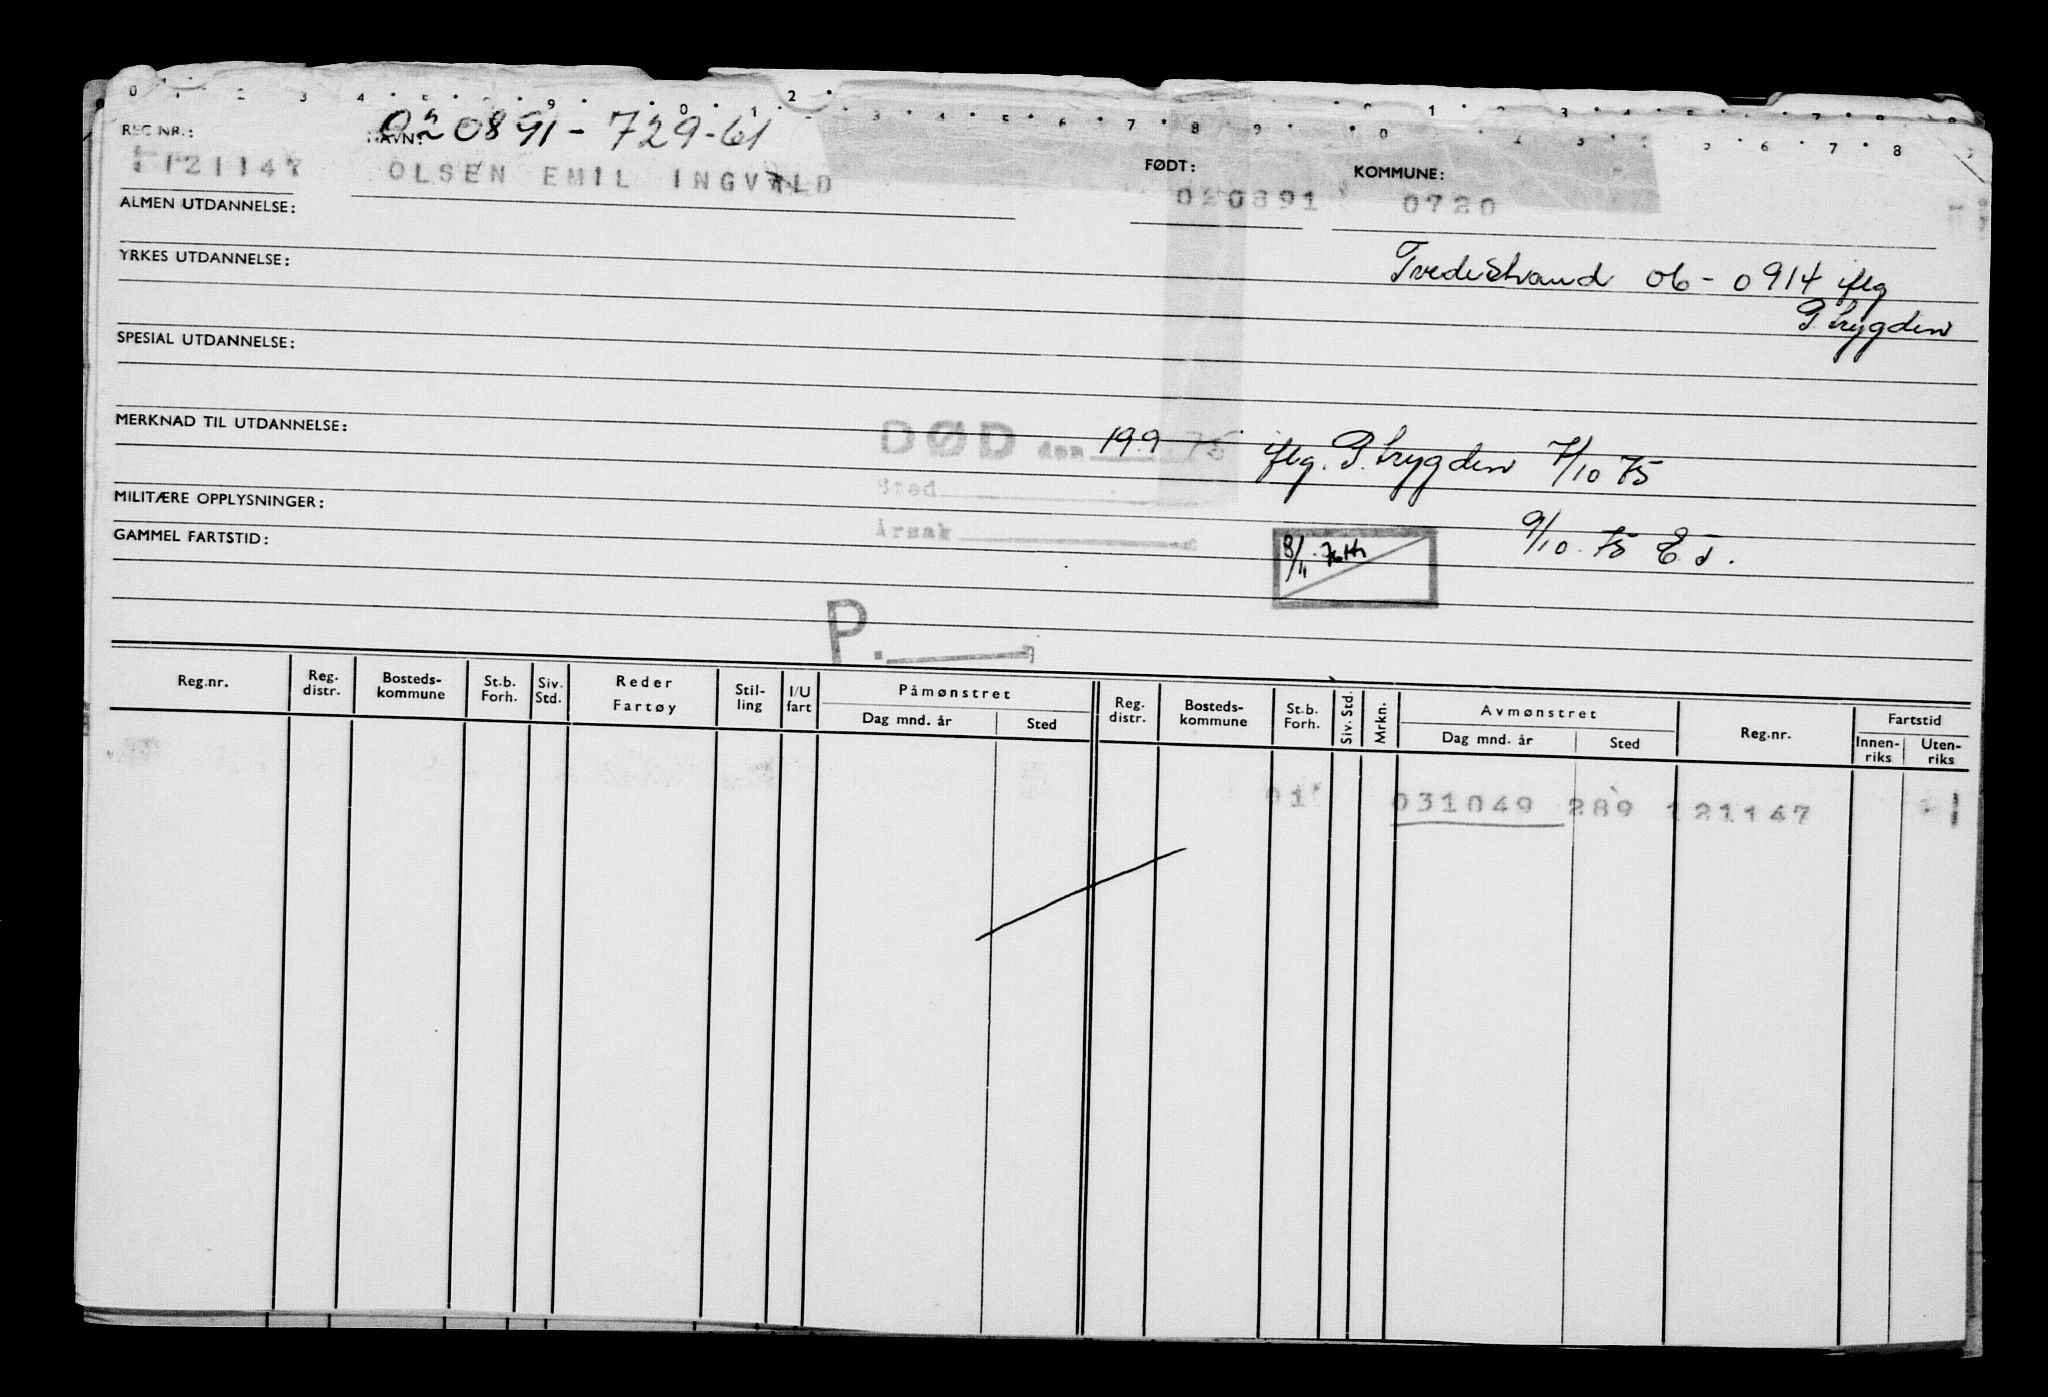 020891-729-61
REG NR.: NAVN: FØDT: KOMMUNE:
121147 OLSEN EMIL INGVALD 020891 0720
ALMEN UTDANNELSE:
YRKES UTDANNELSE: Tvedestrand 06-0914 iflg
P.trygden
SPESIAL UTDANNELSE:
MERKNAD TIL UTDANNELSE: DØD den 19.9 75 iflg. P.trygden 7/10 75
Sted
MILITÆRE OPPLYSNINGER: 9/10. 75 E.J.
Årsak
GAMMEL FARTSTID: 8/11
P.
Reg.nr. Reg. distr. Bosteds-kommune St.b. Forh. Siv. Std. Reder Fartøy Stil-ling I/U fart Påmønstret Dag mnd. år Sted Reg. distr. Bosteds-kommune St.b. Forh. Siv. Std. Mrkn. Avmønstret Dag mnd. år Sted Reg.nr. Fartstid Innen-riks Uten-riks
01 031049 289 121147